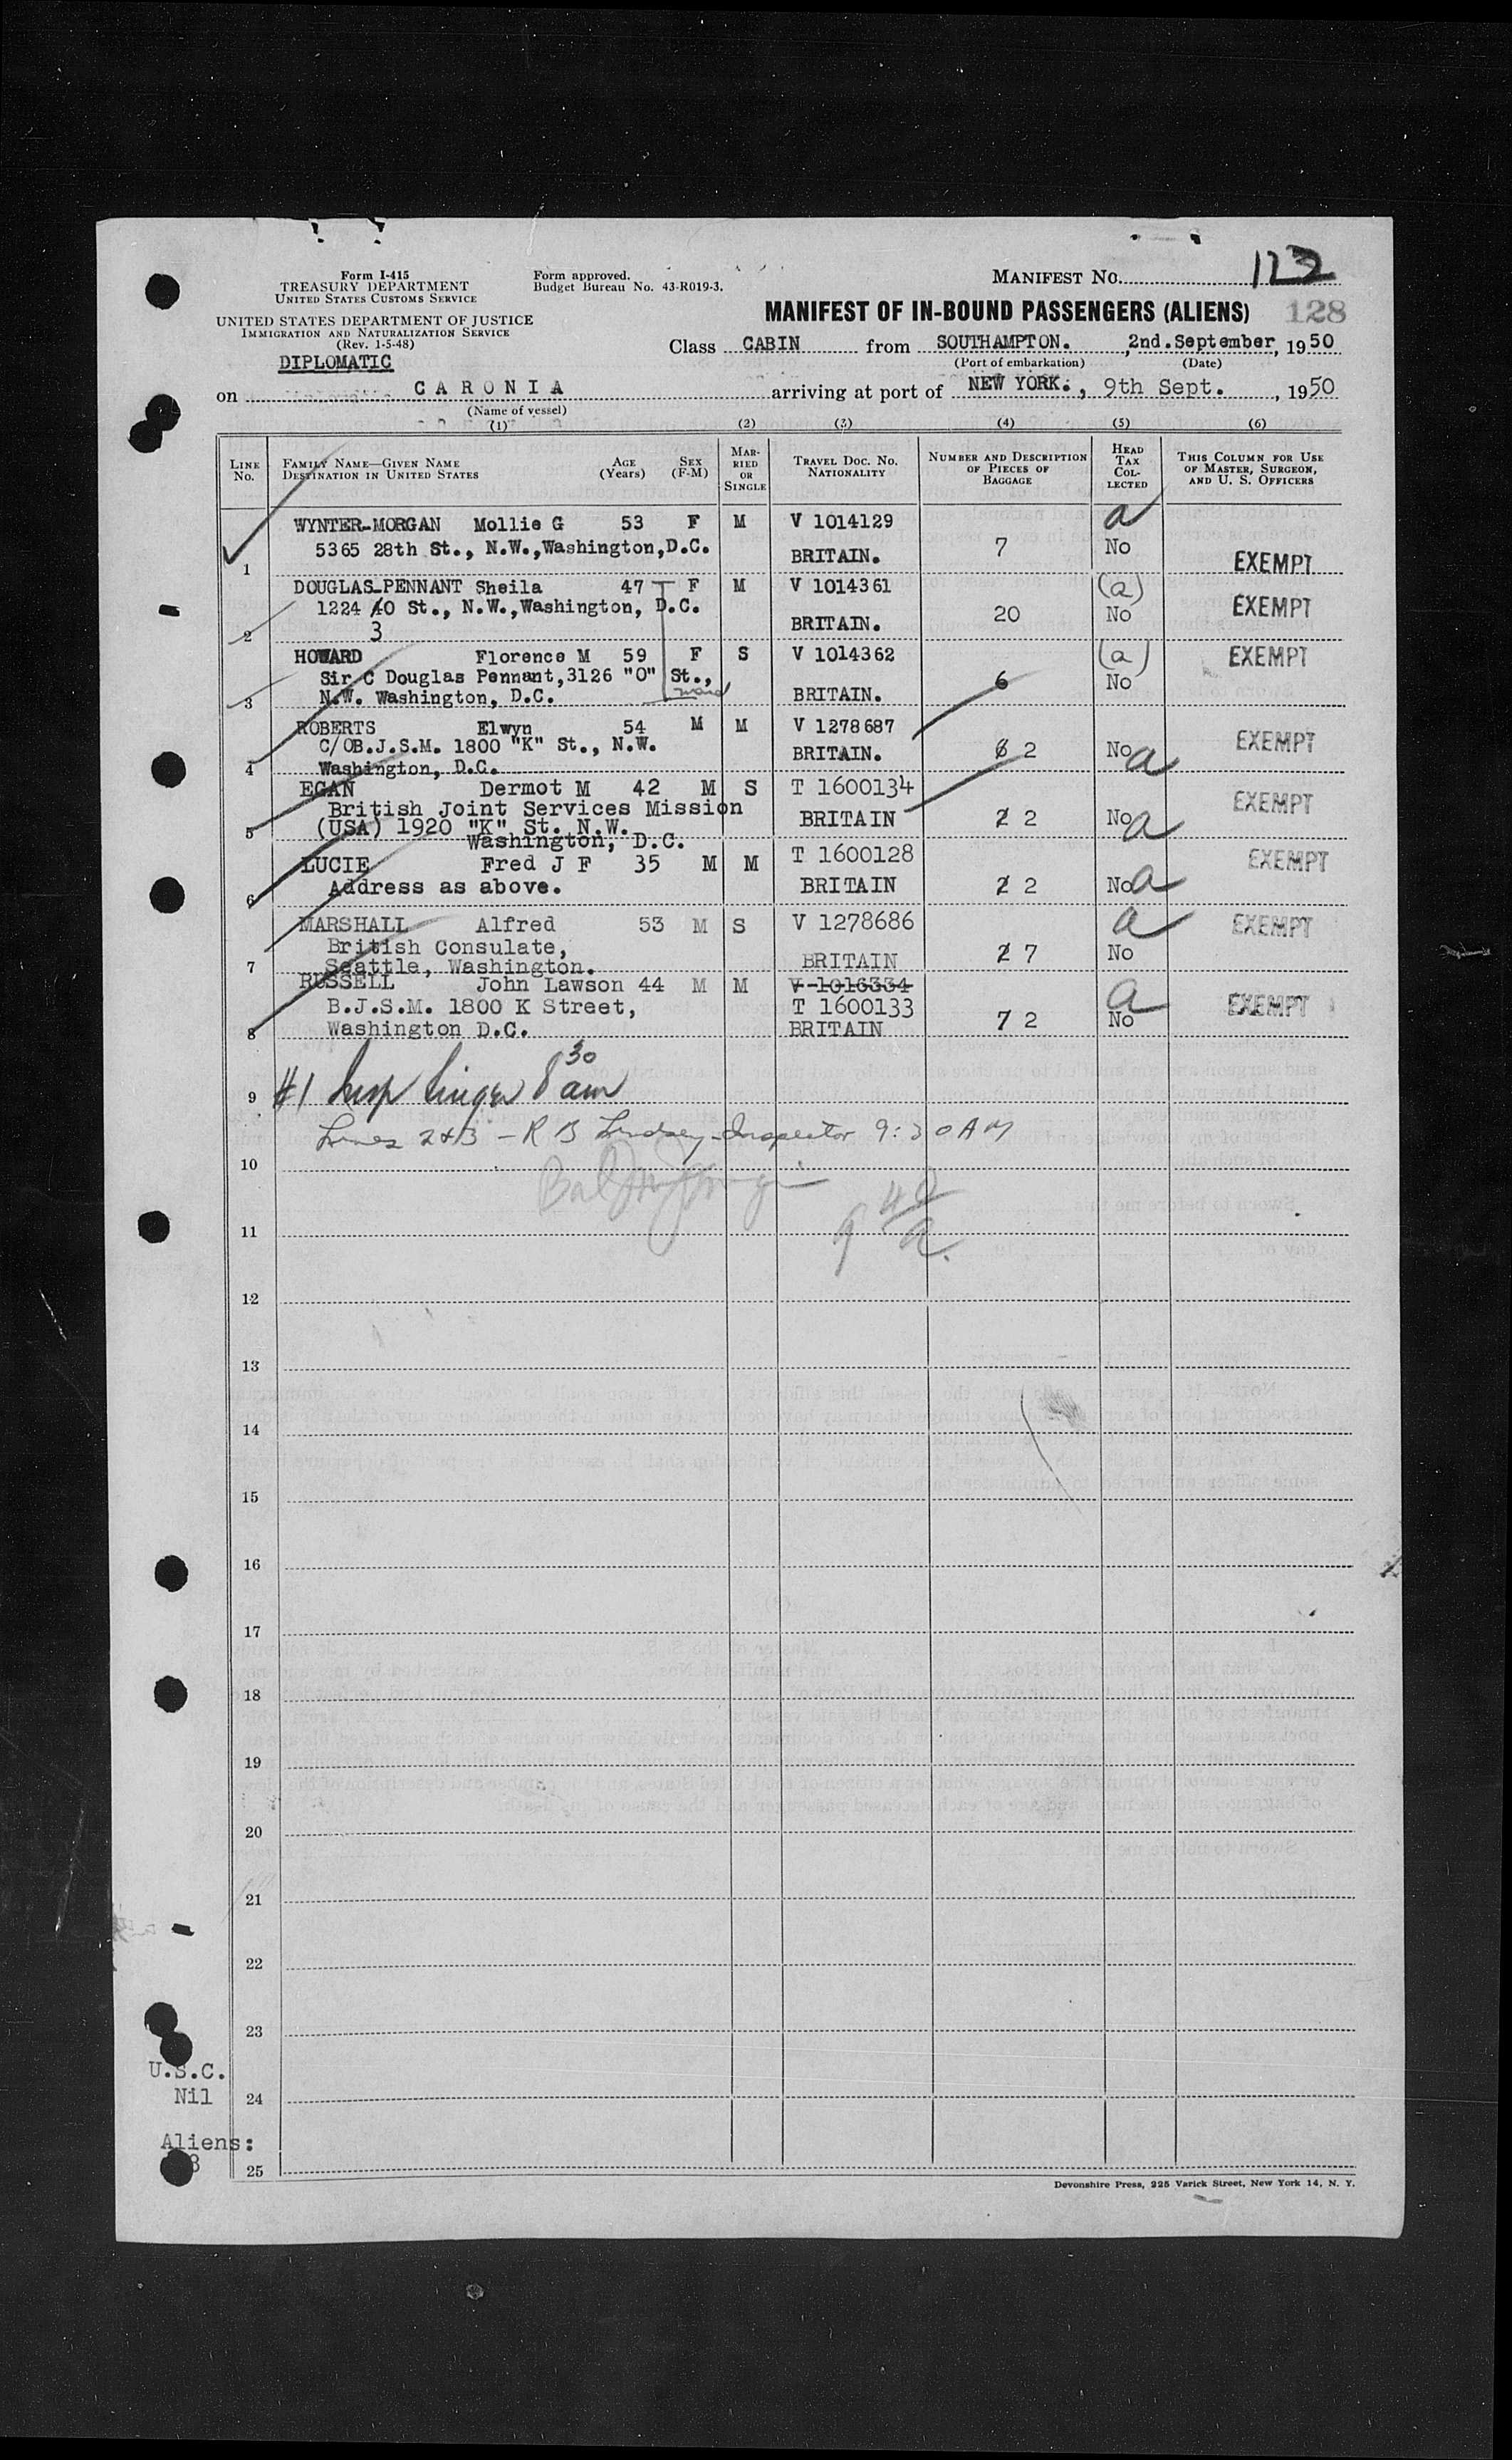 Form I-415
TREASURY DEPARTMENT
UNITED STATES CUSTOMS SERVICE
UNITED STATES DEPARTMENT OF JUSTICE
IMMIGRATION AND NATURALIZATION SERVICE
(Rev. 1-5-48)
DIPLOMATIC
Form approved.
Budget Bureau No. 43-R019-3.
MANIFEST NO.
MANIFEST OF IN-BOUND PASSENGERS (ALIENS) 128
Class CABIN from SOUTHAMPTON. , 2nd.September, 1950
(Port of embarkation) (Date)
on CARONIA arriving at port of NEW YORK. , 9th Sept. , 1950
(Name of vessel)
(1) (2) (3) (4) (5) (6)
LINE No. FAMILY NAME—GIVEN NAME DESTINATION IN UNITED STATES AGE (Years) SEX (F-M) MARRIED OR SINGLE TRAVEL DOC. NO. NATIONALITY NUMBER AND DESCRIPTION OF PIECES OF BAGGAGE HEAD TAX COLLECTED THIS COLUMN FOR USE OF MASTER, SURGEON, AND U. S. OFFICERS
WYNTER-MORGAN Mollie G 53 F M V 1014129 a
5365 28th St., N.W.,Washington,D.C. BRITAIN. 7 No EXEMPT
1
DOUGLAS-PENNANT Sheila 47 F M V 1014361 (a)
1224 40 St., N.W.,Washington, D.C. BRITAIN. 20 No EXEMPT
2 3
HOWARD Florence M 59 F S V 1014362 (a) EXEMPT
Sir C Douglas Pennant,3126 "O" St., 6 No
3 N.W. Washington, D.C. maid BRITAIN.
ROBERTS Elwyn 54 M M V 1278687
C/OB.J.S.M. 1800 "K" St., N.W. BRITAIN. 6 2 No a EXEMPT
4 Washington, D.C.
EGAN Dermot M 42 M S T 1600134 EXEMPT
British Joint Services Mission
5 (USA) 1920 "K" St. N.W. BRITAIN 2 2 No a
Washington, D.C.
LUCIE Fred J F 35 M M T 1600128 EXEMPT
6 Address as above. BRITAIN 2 2 No a
MARSHALL Alfred 53 M S V 1278686 a EXEMPT
British Consulate,
7 Seattle, Washington. BRITAIN 2 7 No
RUSSELL John Lawson 44 M M V 1016334 a
B.J.S.M. 1800 K Street, T 1600133 EXEMPT
8 Washington D.C. BRITAIN 7 2 No
9 #1 Insp 8 30 am
Lines 2+3 – R B Lindsey-Inspector 9:30 AM
10
11
12
13
14
15
16
17
18
19
20
21
22
23
U.S.C.
Nil 24
Aliens:
8 25
Devonshire Press, 225 Varick Street, New York 14, N. Y.